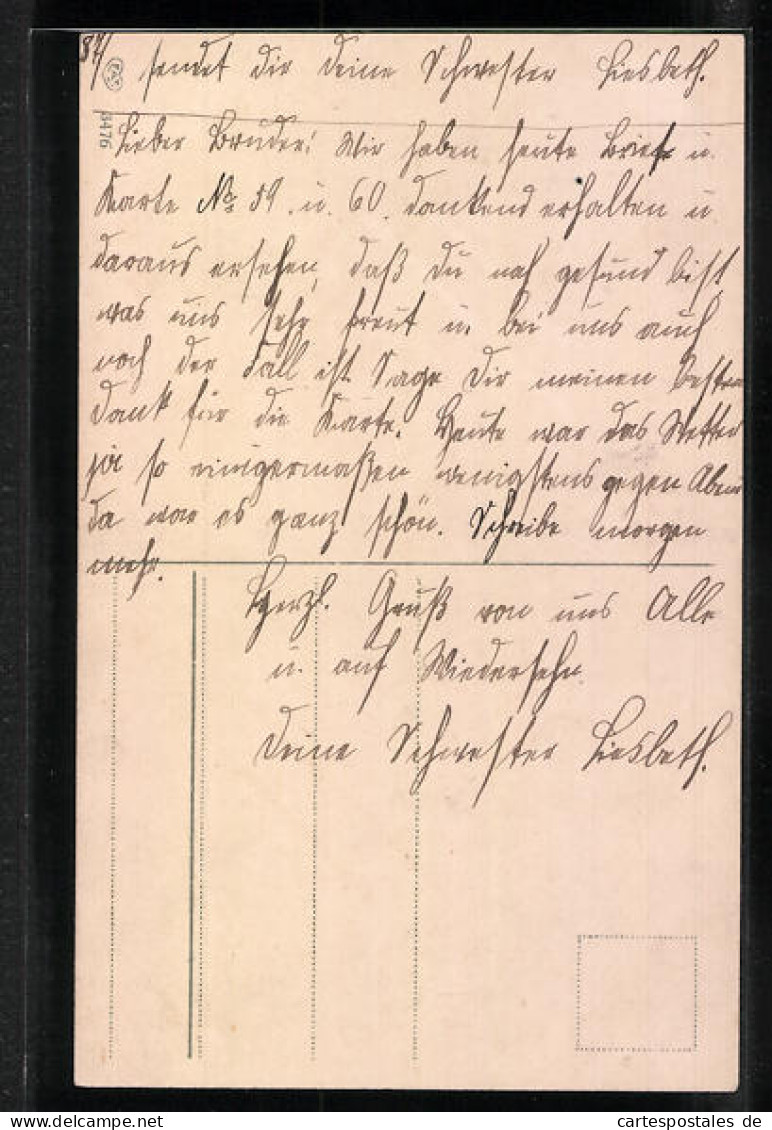 84/ sendet dir deine Schwester Liesbeth.
8476
Lieber Bruder! Wir haben heute Brief u.
Karte No 59. u. 60. dankend erhalten u.
daraus ersehen, daß du noch gesund bist,
was uns sehr freut u. bei uns auch
noch der Fall ist. Sage Dir meinen besten
Dank für die Karte. Heute war das Wetter
ja so einigermaßen wenigstens gegen Abend
da war es ganz schön. Schreibe morgen
mehr.
Herzl. Gruß von uns Alle
u. auf Wiedersehn.
Deine Schwester Liesbeth.
cartespostales de